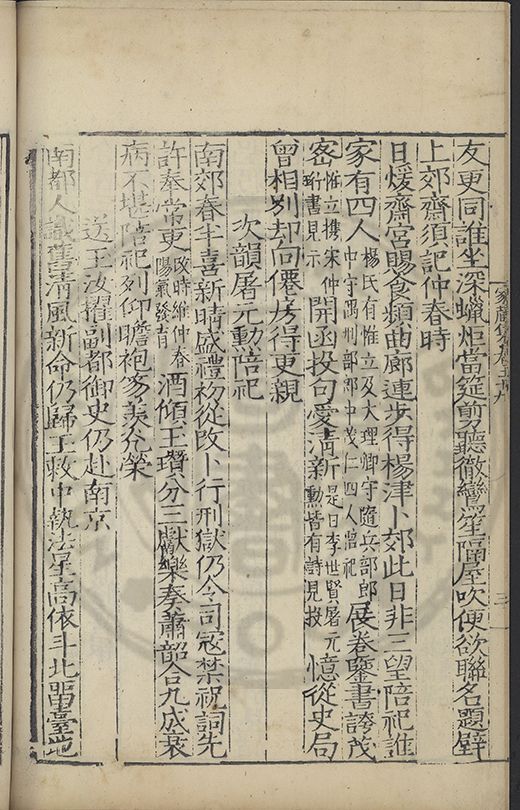 友更同誰坐深蠟炬當筵剪聽徹鸞笙隔屋吹便欲聯名題壁
上郊齋須記仲春時
日煖齋宮賜食頻曲廊連步得楊津卜郊此日非三望陪祀誰
家有四人楊氏有惟立及大理卿守隨兵部郎中守禹刑部郎中茂仁四人陪祀展卷鑒書誇茂
密惟立攜宋仲珩書見示開函投句愛清新是日李世賢屠元勳皆有詩見投憶從史局
曾相別却向僊房得更親
次韻屠元勳陪祀
南郊春半喜新晴盛禮初從改卜行刑獄仍令司寇禁祝詞先
許奉常更改時維仲春陽氣發育酒傾玉瓚分三獻樂奏蕭韶合九成衰
病不堪陪祀列仰瞻袍笏羨公榮
送王汝擢副都御史仍赴南京
南都人識舊清風新命仍歸王敕中執法星高依斗北留臺地
家藏集卷